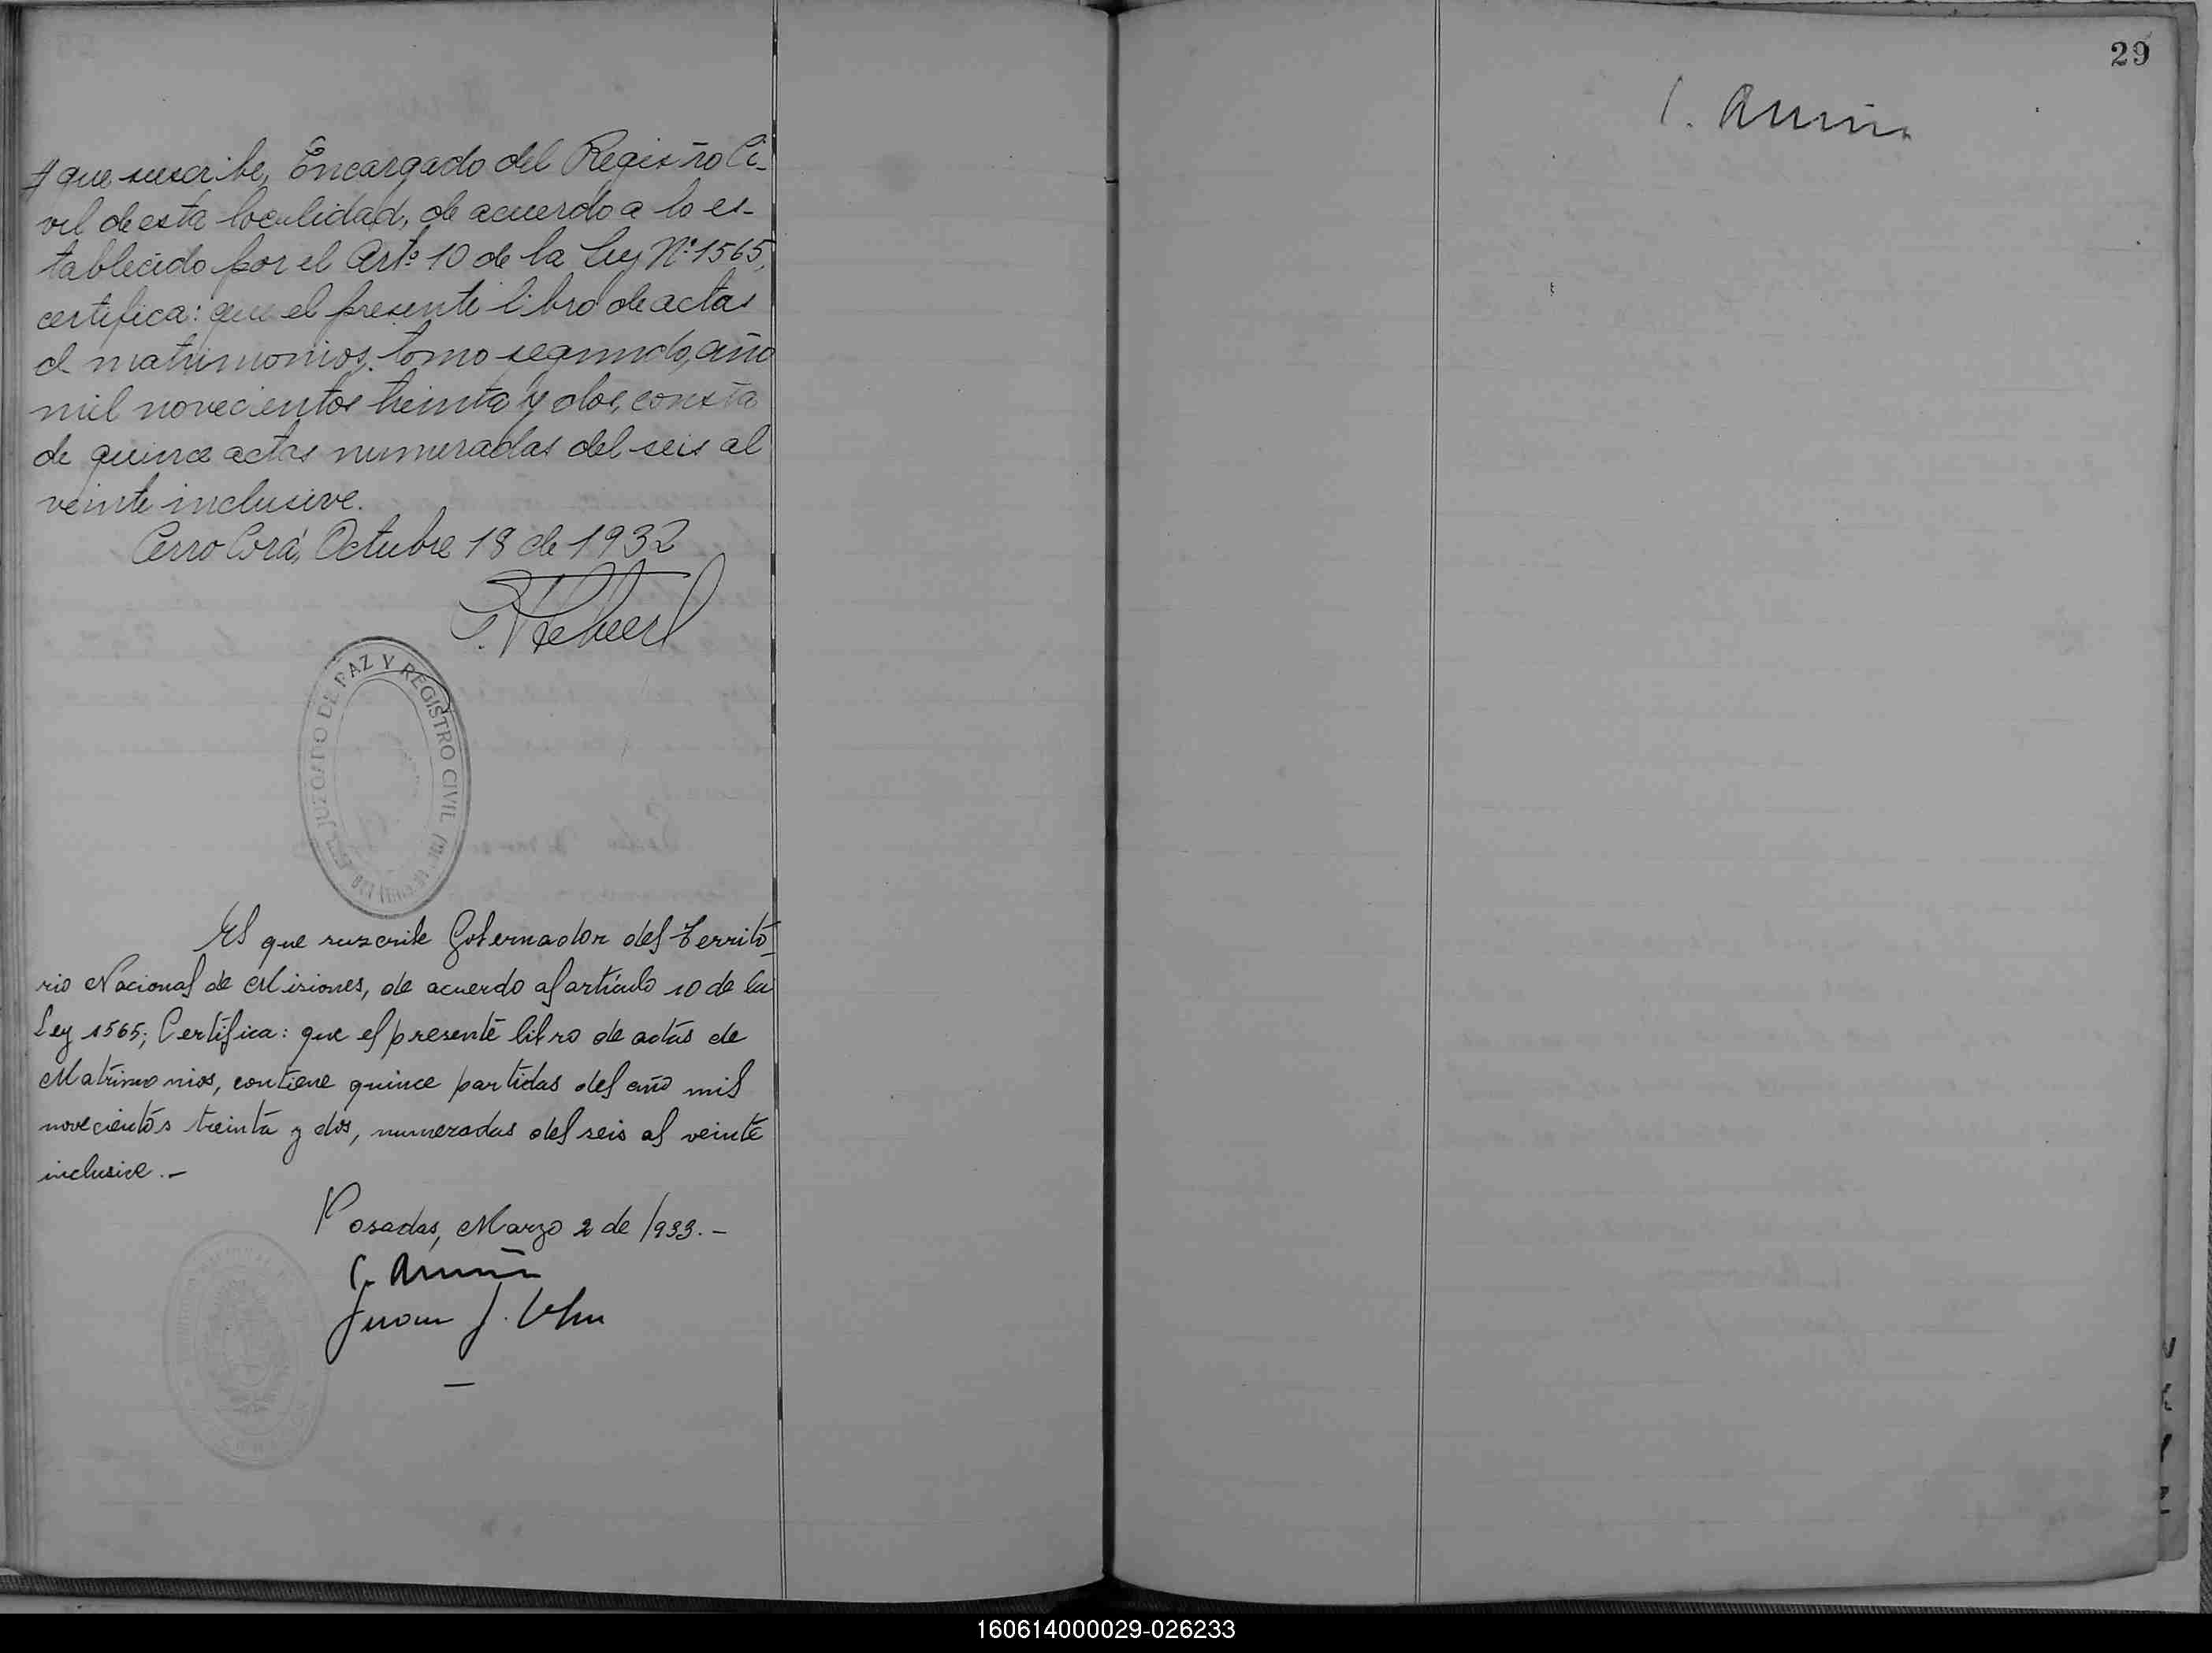 que suscribe, Encargado del Registro Ci-
vil de esta localidad, de acuerdo a lo es-
tablecido por el Arto 10 de la Ley No. 1565,
certifica: que el presente libro de actas
d matrimonios, tomo segundo, año
mil novecientos treinta y dos, consta
de quince actas numeradas del seis al
veinte inclusive.
Cerro Corá, Octubre 18 de 1932
JUZGADO DE PAZ Y REGISTRO CIVIL
El que suscribe Gobernador del Territo-
rio Nacional de Misiones, de acuerdo al artículo 10 de la
Ley 1565; Certifica: que el presente libro de actas de
Matrimonios, contiene quince partidas del año mil
novecientos treinta y dos, numeradas del seis al veinte
inclusive.-
Posadas, Marzo 2 de 1933.-
Juan J.
29
160614000029-026233